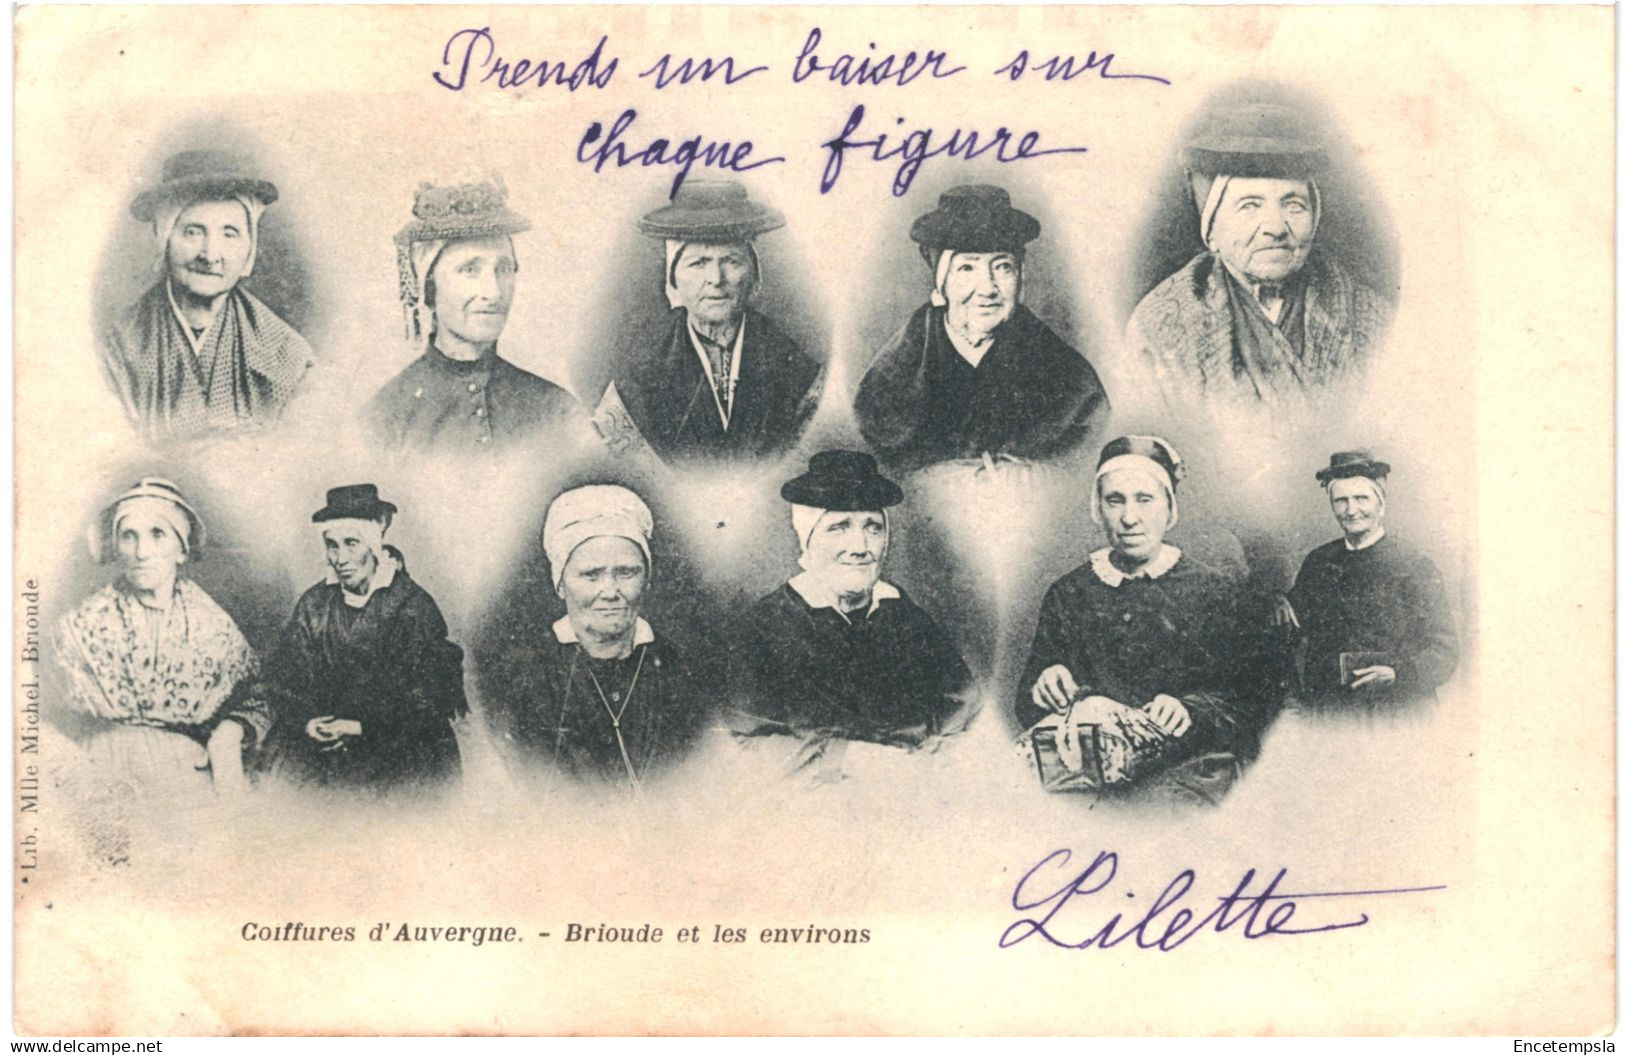 Prends un baiser sur
chaque figure
Lib. Mlle Michel, Brioude
Coiffures d'Auvergne. - Brioude et les environs
Lilette
delcampe.com/encetempsla
Encetempsla